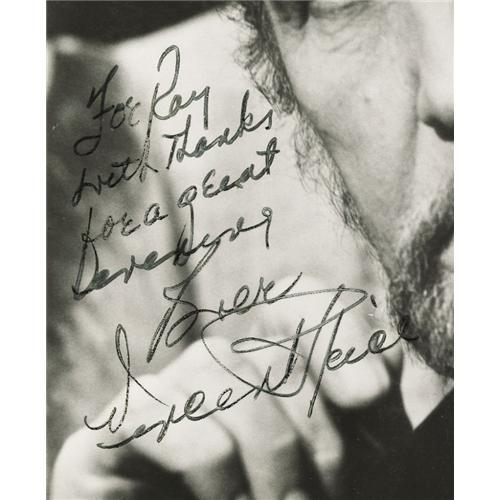 For Ray
with thanks
for a great
Vincent Price